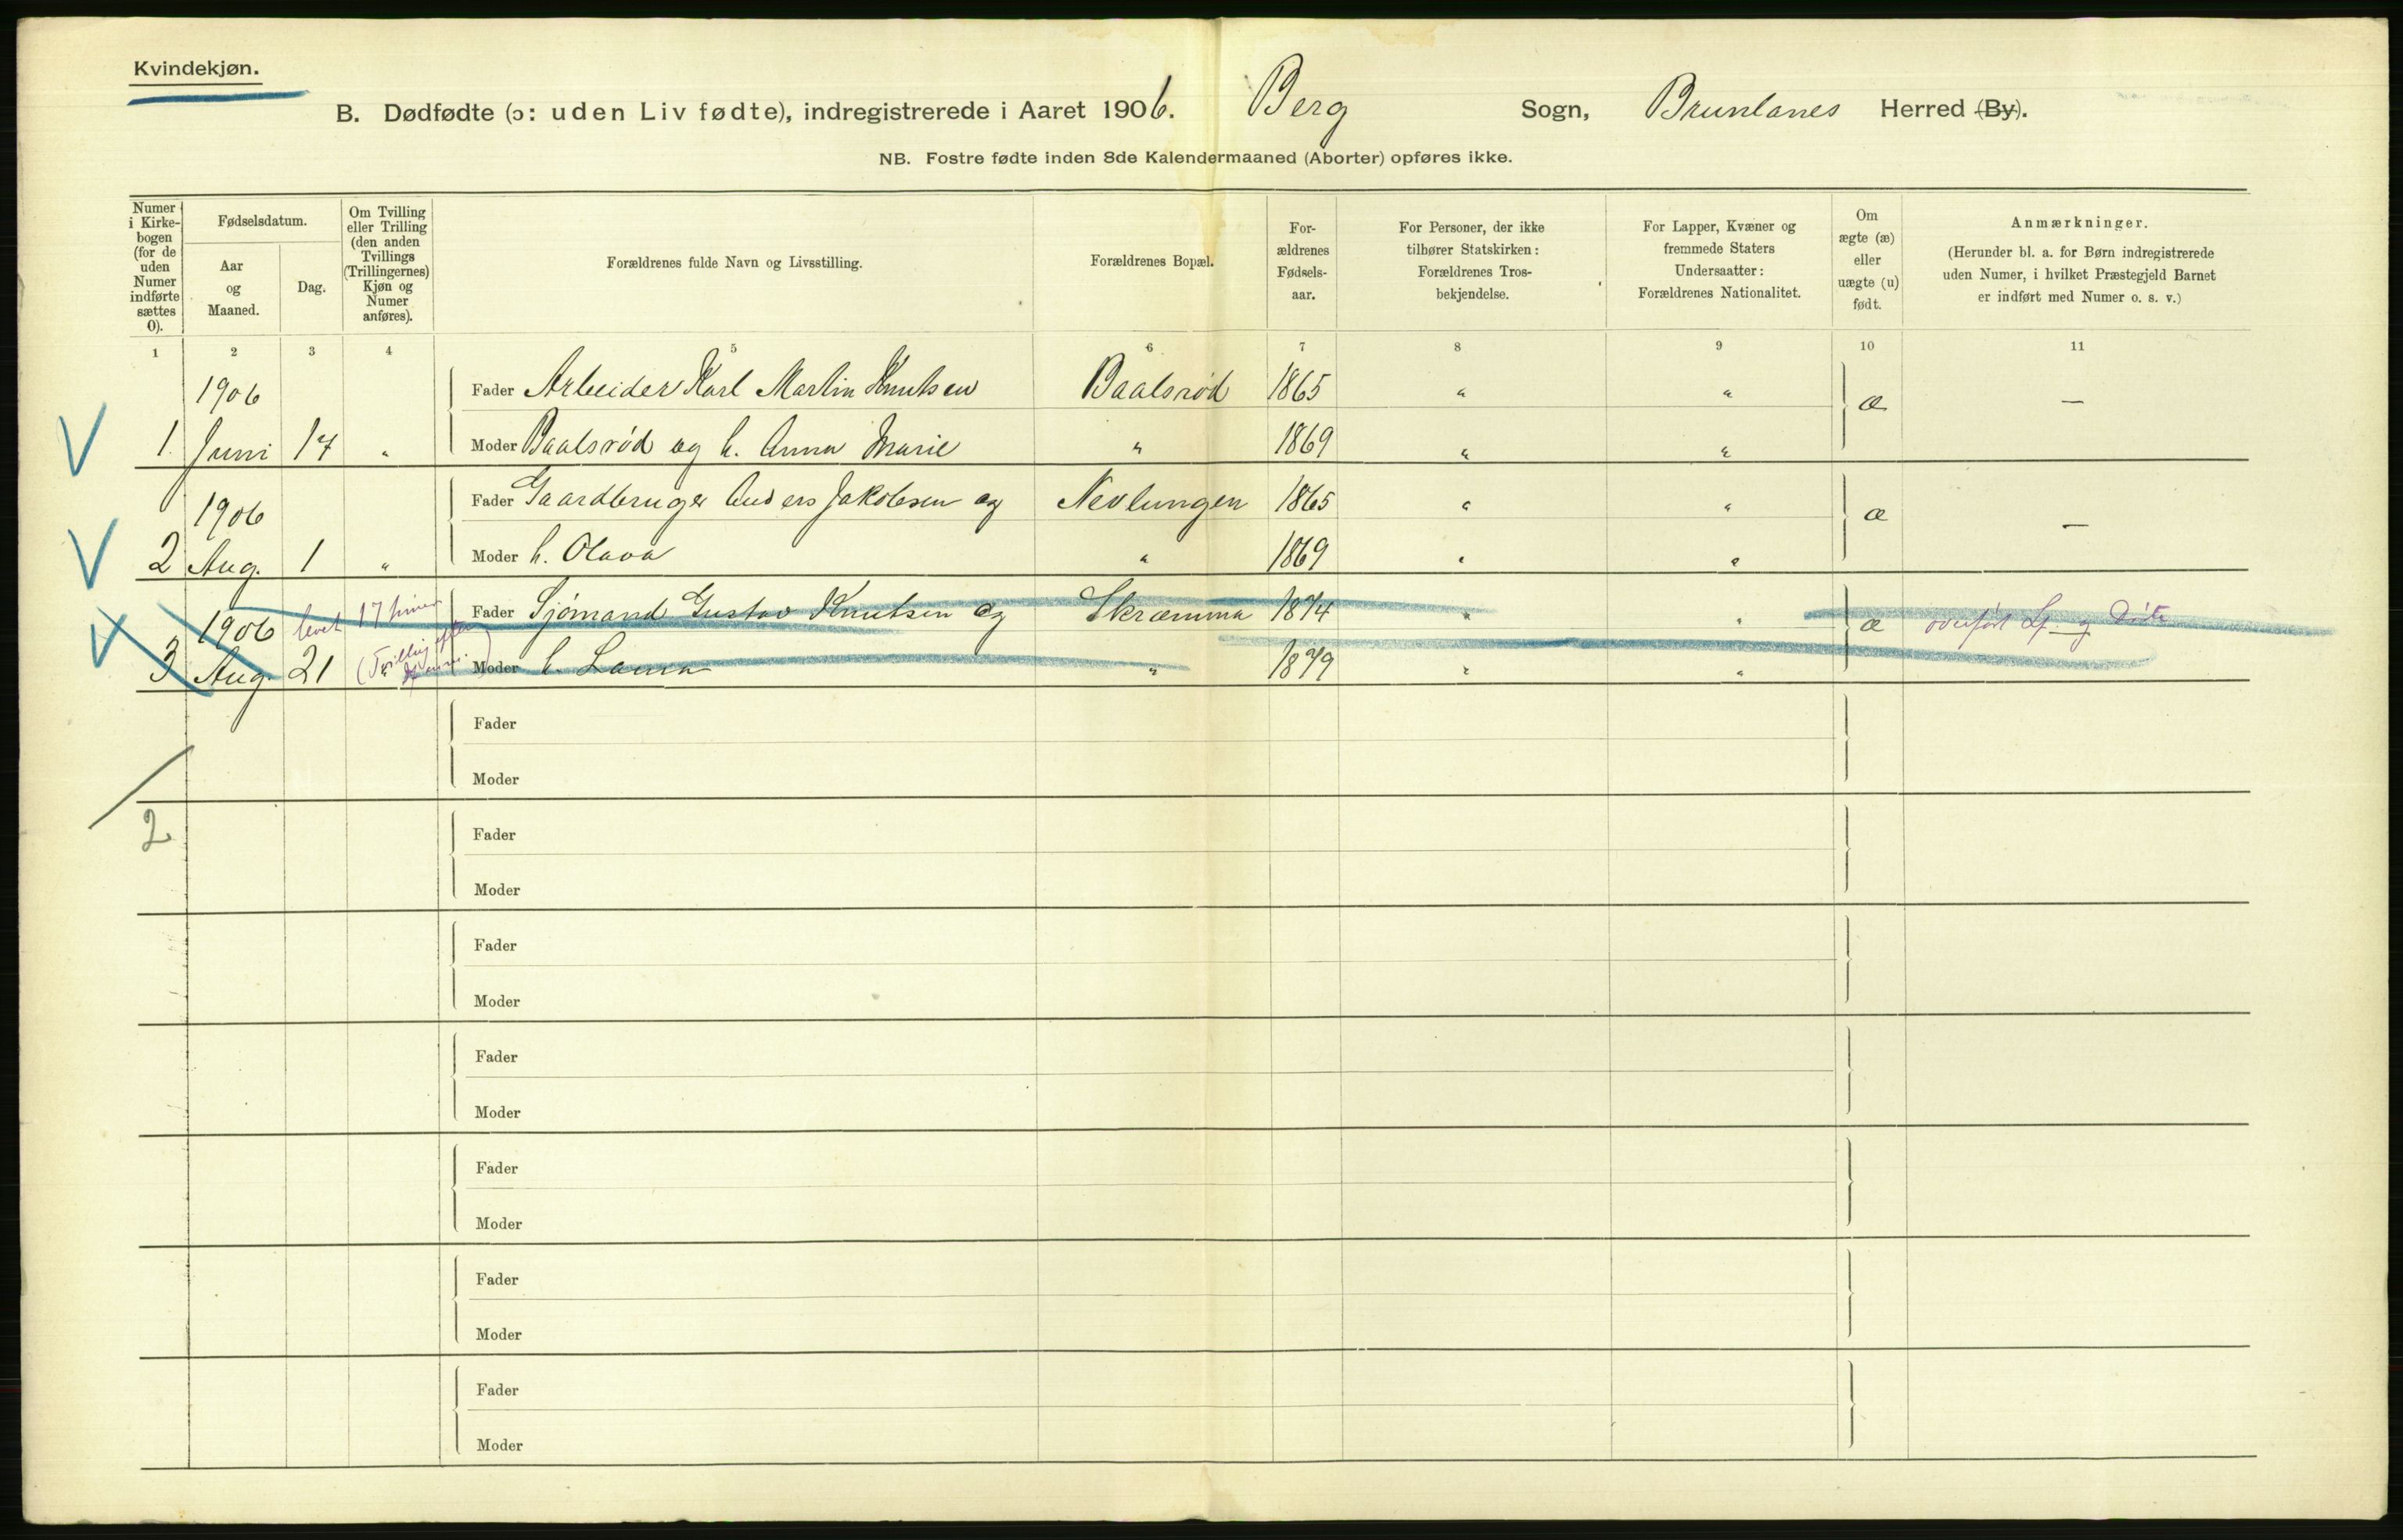 Kvindekjøn.
B. Dødfødte (ɔ: uden Liv fødte), indregistrerede i Aaret 1906. Berg Sogn, Brunlanes Herred (By).
NB. Fostre fødte inden 8de Kalendermaaned (Aborter) opføres ikke.
Numer i Kirke-
bogen
(for de
uden
Numer
indførte
sættes
0).
Fødselsdatum.
Aar
og
Maaned.
Dag.
Om Tvilling
eller Trilling
(den anden
Tvillings
(Trillingernes)
Kjøn og
Numer
anføres).
Forældrenes fulde Navn og Livsstilling.
Forældrenes Bopæl.
For-
ældrenes
Fødsels-
aar.
For Personer, der ikke
tilhører Statskirken:
Forældrenes Tros-
bekjendelse.
For Lapper, Kvæner og
fremmede Staters
Undersaatter:
Forældrenes Nationalitet.
Om
ægte (æ)
eller
uægte (u)
født.
Anmærkninger.
(Herunder bl. a. for Børn indregistrerede
uden Numer, i hvilket Præstegjeld Barnet
er indført med Numer o. s. v.)
1 2 3 4 5 6 7 8 9 10 11
1906 Fader Arbeider Karl Martin Knutsen Baalsrød 1865 " " æ —
V 1. Juni 17 " Moder Baalsrød og h. Anna Marie " 1869 " "
1906 Fader Gaardbruger Anders Jakobsen og Nevlungen 1865 " " æ —
V 2 Aug. 1 " Moder h. Olava " 1869 " "
1906 levet 17 timer Fader Sjømand Gustav Knutsen og Skræmma 1874 " " æ overført Lf. og Døde
V 3 Aug. 21 (Tvilling Moder h. Laura " 1879 " "
Fader
Moder
2
Fader
Moder
Fader
Moder
Fader
Moder
Fader
Moder
Fader
Moder
Fader
Moder